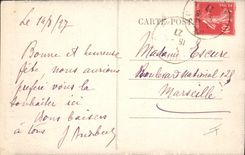 Le 14/8/27
CARTE POSTALE
Bonne et heureuse
fête nous aurions
préféré vous la
souhaiter ici
Bons baisers
à tous
Madame Escure
Boulevard national 128
Marseille